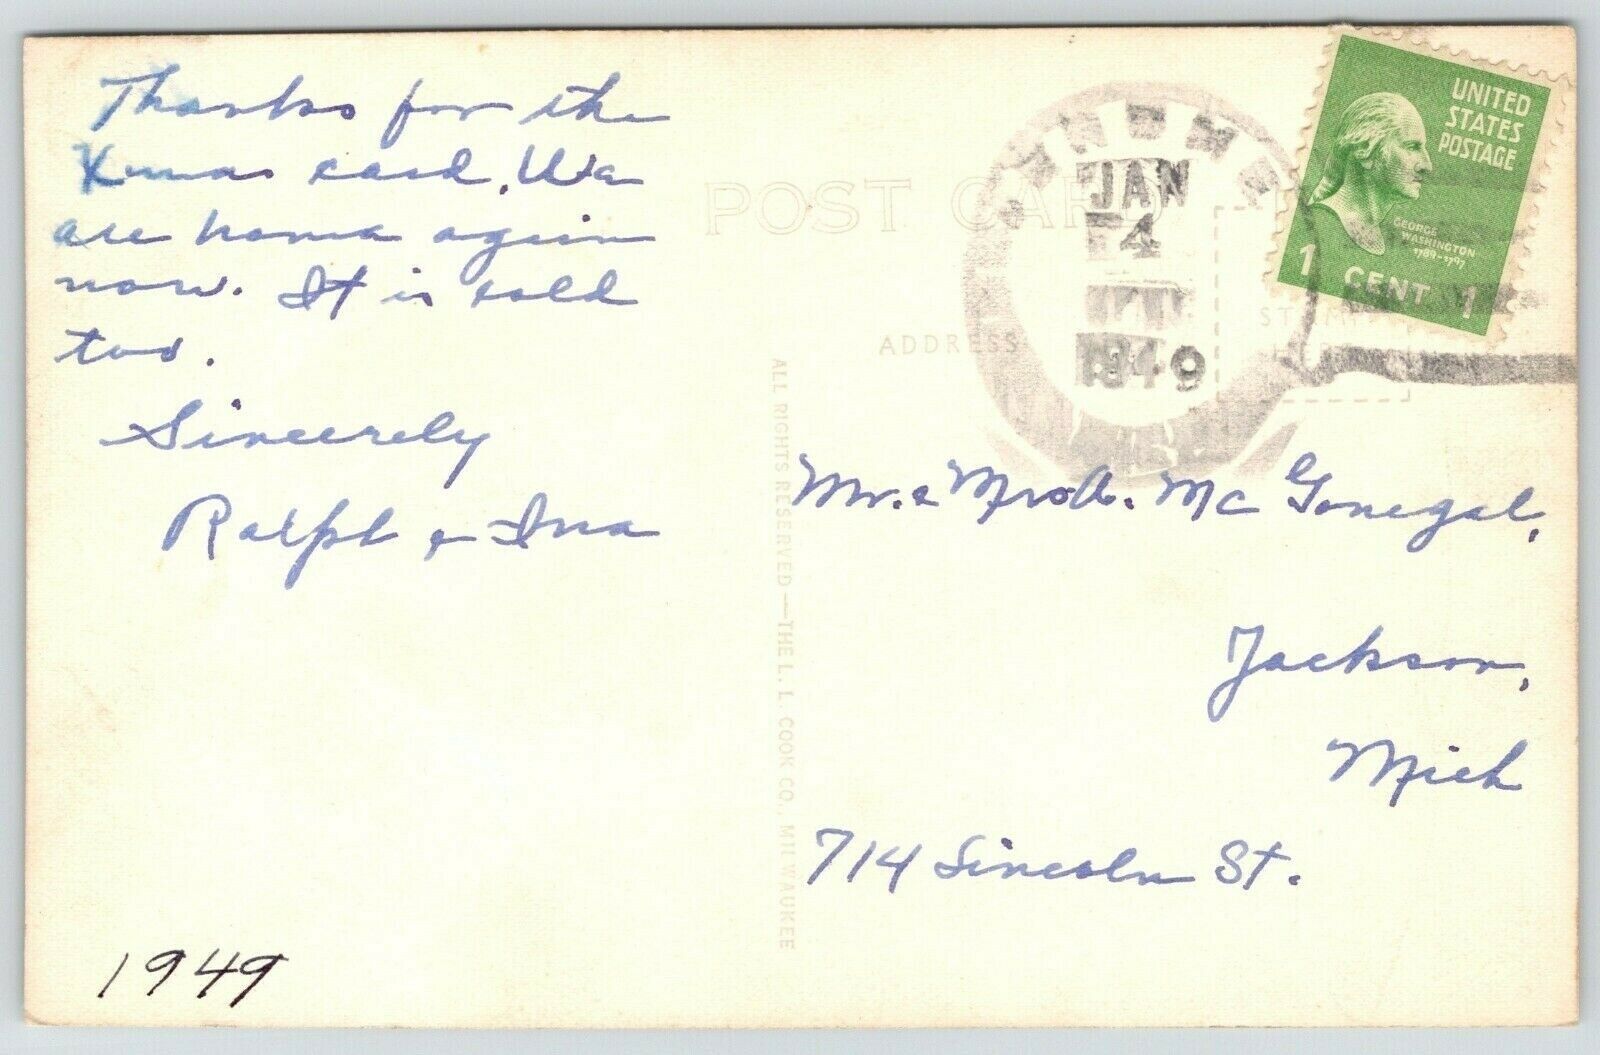 Thanks for the
Xmas card. We
are home again
now. It is cold
too.
Sincerely
Ralph & Ina
1949
POST CARD
ADDRESS
ALL RIGHTS RESERVED—THE L. L. COOK CO., MILWAUKEE
JAN
4
1949
STAMP
HERE
UNITED
STATES
POSTAGE
GEORGE
WASHINGTON
1789-1797
1 CENT 1
Mr. & Mrs A. Mc Gonegal,
Jackson,
Mich
714 Lincoln St.